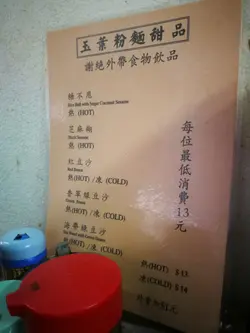 玉葉粉麵甜品
謝絕外帶食物飲品
每位最低消費13元
Rice Ball with Sugar Coconut Sesame
熱(HOT)
芝麻糊
熱(HOT)
紅豆沙
Red Bean
熱(HOT) /凍 (COLD)
香草綠豆沙
熱(HOT) /凍 (COLD)
海帶綠豆沙
熱(HOT) $ 13
凍(COLD) $ 14
外賣加$1元